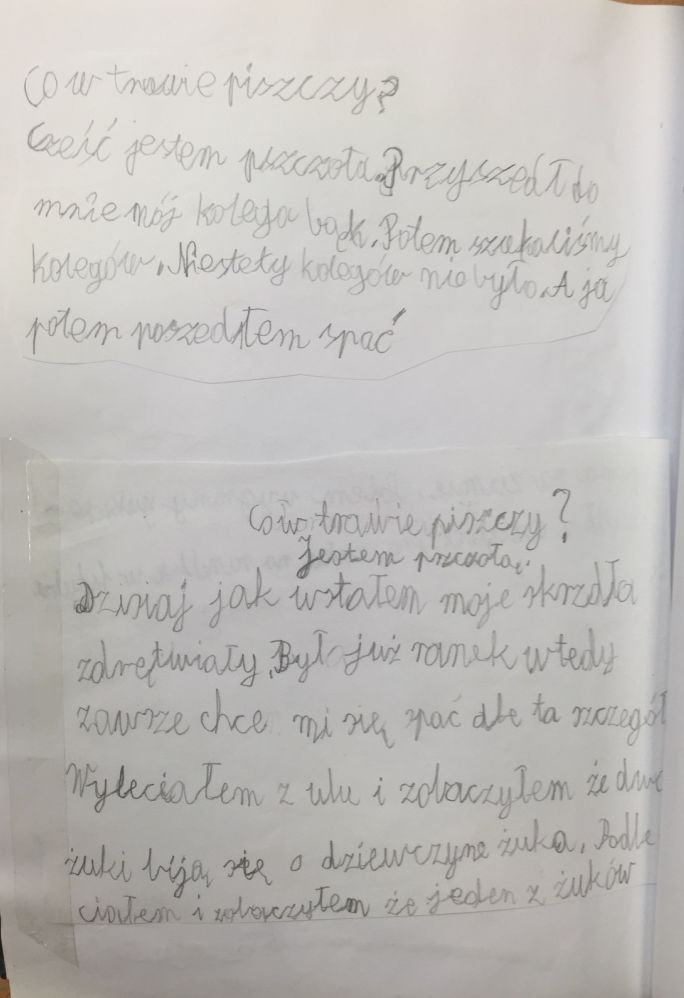 Co w trawie piszczy?
Cześć jestem pszczoła. Przyszedł do
mnie mój kolega bąk. Potem szukaliśmy
kolegów. Niestety kolegów nie było. A ja
potem poszedłem spać
Co w trawie piszczy?
Jestem pszczołą.
Dzisiaj jak wstałem moje skrzdła
zdrętwiały. Był już ranek wtedy
zawsze chce mi się spać ale ta szczegół
Wyleciałem z ulu i zobaczyłem że dwa
żuki biją się o dziewczyne żuka. Podle
ciałem i zobaczyłem że jeden z żuków